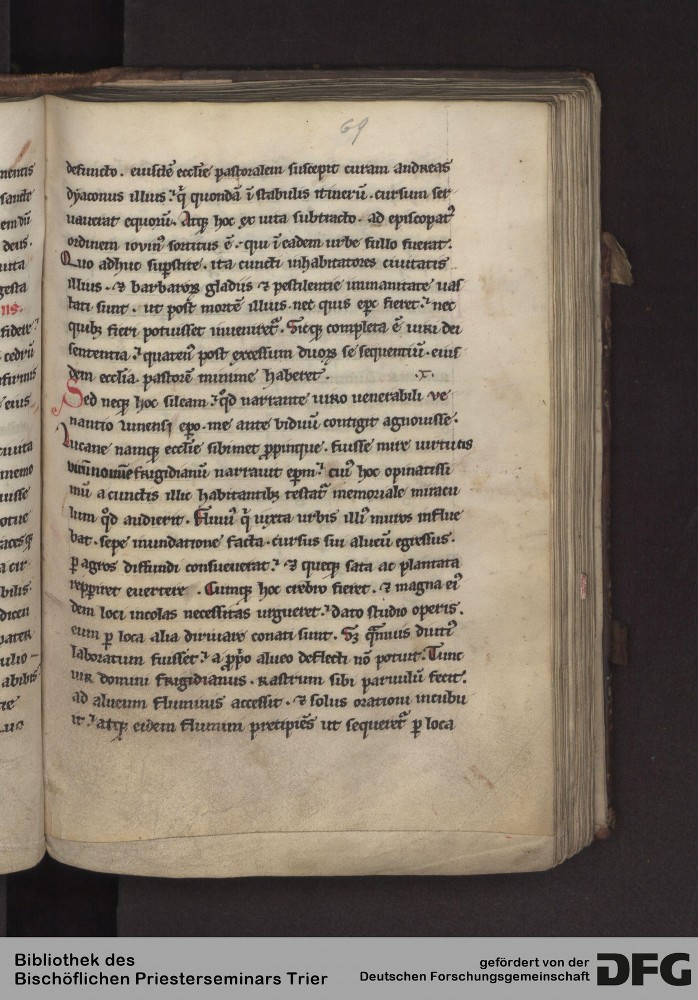 69
defuncto. eiusdē ecclīe pastoralem suscepit curam andreas
dyaconus illius. q̇ quondā ī stabulis itinerū. cursum ser
uauerat equorū. Atq; hoc ex uita subtracto. ad episcopat᷒
ordinem iouin᷒ sortitus ē. qui ī eadem urbe fullo fuerat.
Quo adhuc sup̄stite. ita cuncti inhabitatores ciuitatis
illius. ⁊ barbaroꝝ gladiis ⁊ pestilentie immanitate uas
tati sunt. ut post mortē illius. nec quis ep̄c fieret. nec
quib; fieri potuisset inueniret᷑. Sicq; completa ē uiri dei
sententia. quaten᷒ post excessum duoꝝ se sequentiū. eius
dem ecclīa. pastorē minime haberet. .x.
Sed neq; hoc sileam. qd̄ narrante uiro uenerabili ve
nantio lunensi ep̄o. me ante biduū contigit agnouisse.
Lucane namq; ecclīe sibimet p̄pinque. fuisse mire uirtutis
uirū nomine frigidianū narrauit ep̄m. cui᷒ hoc opinatissi
mū a cunctis illic habitantib; testat᷑ memoriale miracu
lum qd̄ audierit. Fluui᷒ q̇ iuxta urbis illi᷒ muros influe
bat. sepe inundatione facta. cursus sui alueū egressus.
ꝑ agros diffundi consueuerat. ⁊ queq; sata ac plantata
rep̄piret euertere. Cumq; hoc crebro fieret. ⁊ magna ei᷒
dem loci incolas necessitas urgueret. dato studio operis.
eum ꝑ loca alia diriuare conati sunt. Sꝫ q̄muis diuti᷒
laboratum fuisset. a p̄p̄o alueo deflecti nō potuit. Tunc
uir domini frigidianus. Rastrum sibi paruulū fecit.
ad alueum fluminis accessit. ⁊ solus orationi incubu
it. atq; eidem flumini precipiēs ut sequeret᷑ ꝑ loca
Bibliothek des
Bischöflichen Priesterseminars Trier
gefördert von der
Deutschen Forschungsgemeinschaft
DFG